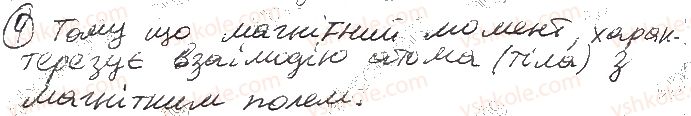 4 Тому що магнітний момент, харак-
терезує взаімодію атома (тіла) з
магнітним полем.